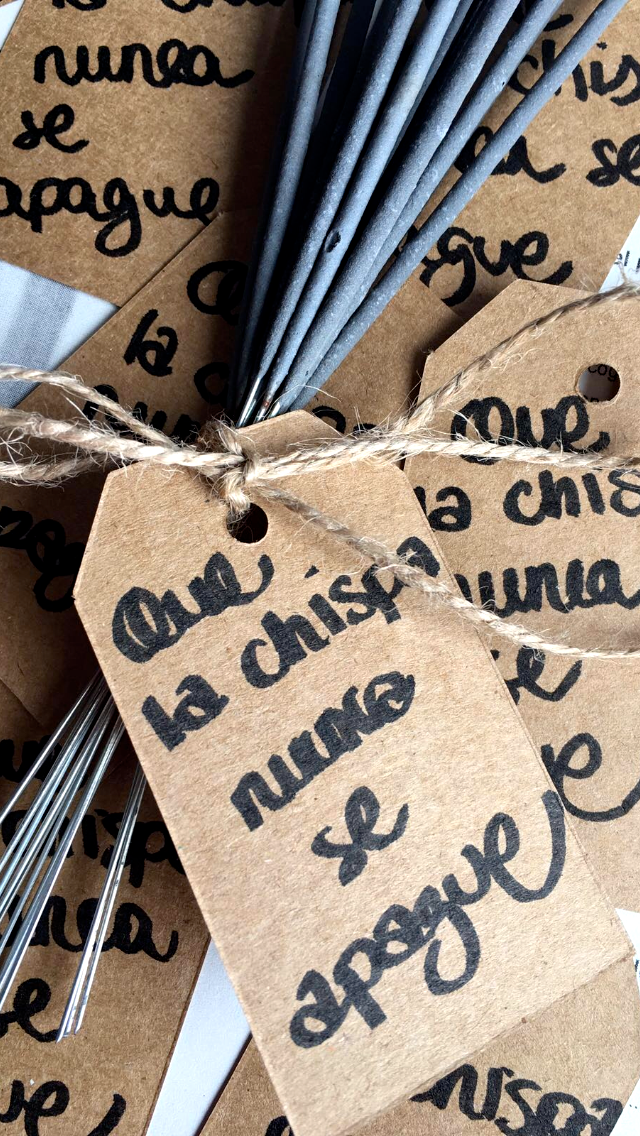 nunca
se
apague
chis
se
gue
Que
la
Que
la chispa
nunca
se
apague
Que
la chis
nunca
se
e
chispa
nca
se
ue
chispa